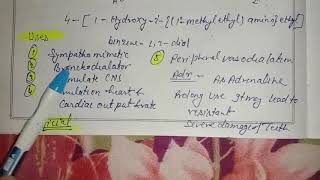 4-[1-Hydroxy-2-[(1-methylethyl)amino]ethyl]
benzene-1,2-diol
Uses
① Sympathomimetic
Bronchodialator
mulate CNS
mulation heart &
Cardiac output & rate
⑤ Peripheral vasodialation
Adr - As Adrenaline
Prolong use It may lead to
resistant
Severe damage of Teeth